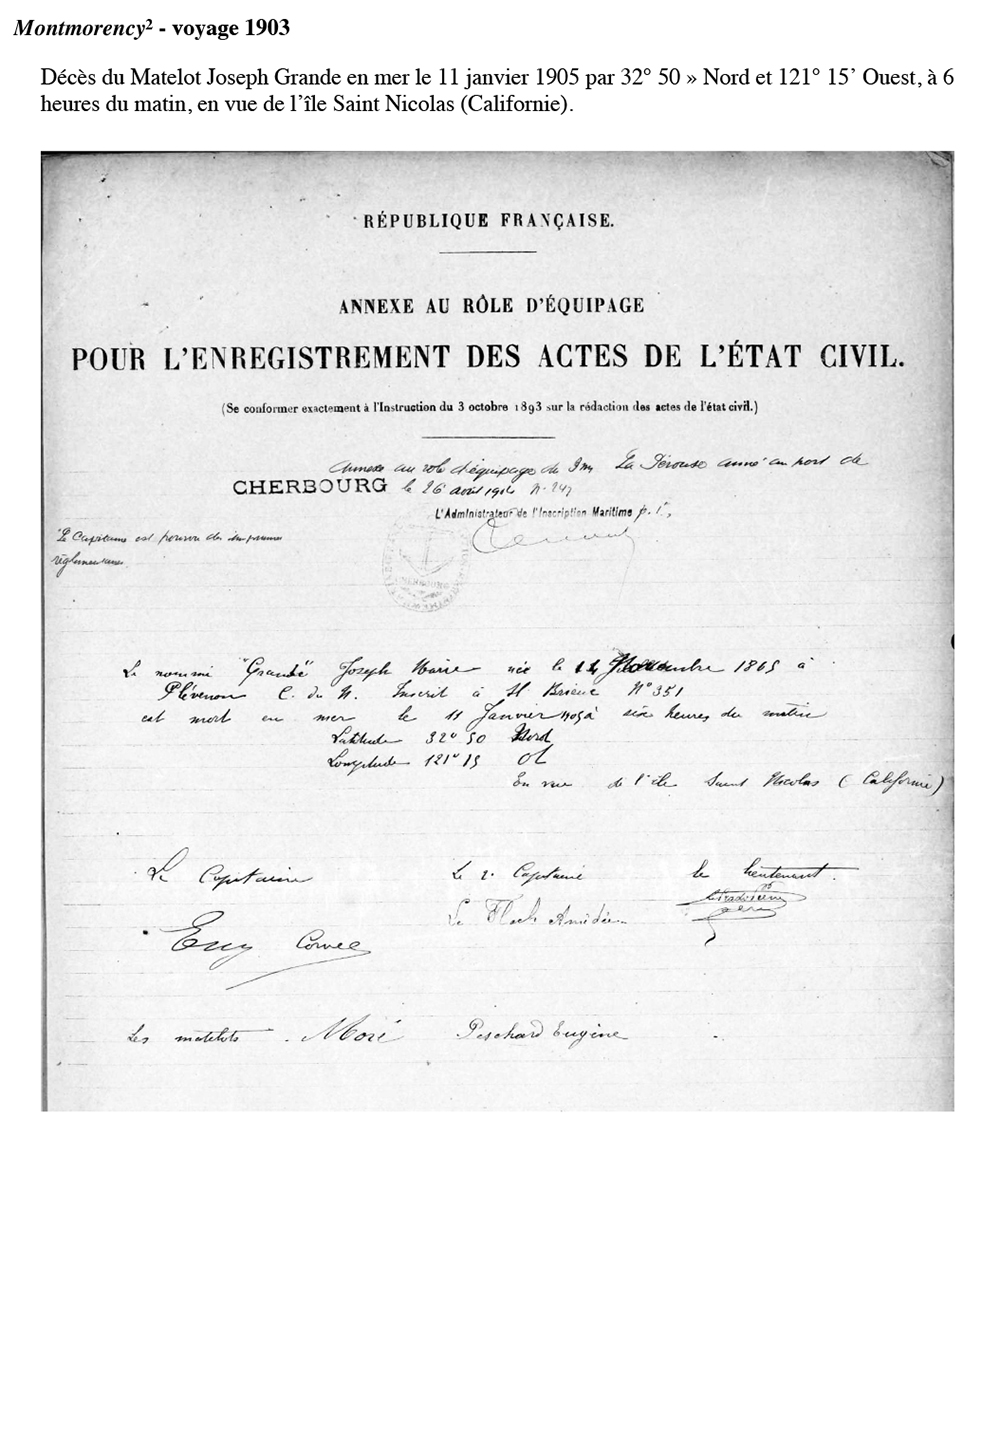 Montmorency² - voyage 1903
Décès du Matelot Joseph Grande en mer le 11 janvier 1905 par 32° 50 » Nord et 121° 15’ Ouest, à 6
heures du matin, en vue de l’île Saint Nicolas (Californie).
RÉPUBLIQUE FRANÇAISE.
ANNEXE AU RÔLE D'ÉQUIPAGE
POUR L'ENREGISTREMENT DES ACTES DE L'ÉTAT CIVIL.
(Se conformer exactement à l'Instruction du 3 octobre 1893 sur la rédaction des actes de l'état civil.)
Annexe au role d'équipage du 3m La Pérouse armé au port de
CHERBOURG le 26 août 1904 N° 247
L'Administrateur de l'Inscription Maritime p. i.,
Le Capitaine est pourvu des imprimés
réglementaires.
CHERBOURG
Le nommé "Grande" Joseph Marie née le 14 1865 à
Plévenon C. du N. Inscrit à St Brieuc N° 351
est mort en mer le 11 Janvier 1905 à six heures du matin
Latitude 32° 50 Nord
Longitude 121° 15 Ot
En vue de l'île Saint Nicolas (Californie)
Le Capitaine Le 2. Capitaine le lieutenant.
Le Floch Amédée
Les matelots Moré Peschard Eugène